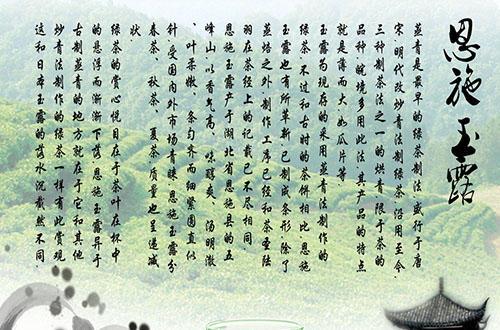 恩施玉露
蒸青是最早的绿茶制法盛行于唐
宋明代改炒青法制绿茶沿用至今.
三种制茶法之一的烘青限于茶的
品种.皖境多用此法.其产品的特点
就是薄而大如瓜片等.
玉露为现存的采用蒸青法制作的
绿茶.不过和古时的茶饼相比恩施
玉露也有所革新.已制成条形除了
蒸焙之外.制作工序已经和茶圣陆
羽在茶经上的记载已不尽相同.
恩施玉露产于湖北省恩施县的五
峰山.以香气高、味醇爽、汤明澈
、叶柔嫩、条匀齐而细紧圆直似
针受国内外市场青睐.恩施玉露分
春茶、秋茶、夏茶.质量也呈递减
状.
绿茶的赏心悦目在于茶叶在杯中
的悬浮而渐渐下落.恩施玉露异于
古制蒸青的地方就在于它和其他
炒青法制作的绿茶一样有此赏观.
这和日本玉露的落水沉截然不同.